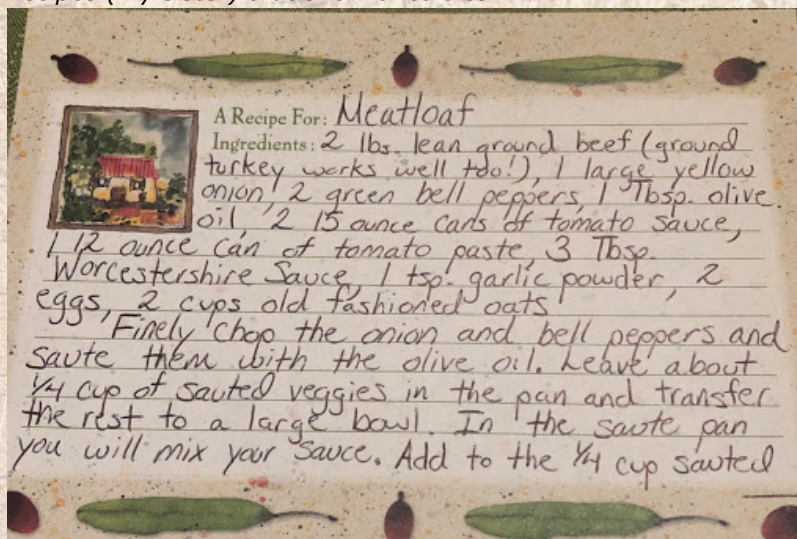 A Recipe For: Meatloaf
Ingredients: 2 lbs. lean ground beef (ground
turkey works well too!), 1 large yellow
onion, 2 green bell peppers, 1 Tbsp. olive
oil, 2 15 ounce cans of tomato sauce,
1 12 ounce can of tomato paste, 3 Tbsp.
Worcestershire Sauce, 1 tsp. garlic powder, 2
eggs, 2 cups old fashioned oats
Finely chop the onion and bell peppers and
saute them with the olive oil. Leave about
1/4 cup of sauted veggies in the pan and transfer
the rest to a large bowl. In the saute pan
you will mix your sauce. Add to the 1/4 cup sauted